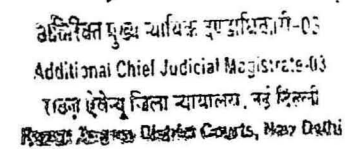 अतिरिक्त मुख्य न्यायिक दण्डाधिकारी-03
Additional Chief Judicial Magistrate-03
राऊज़ ऐवेन्यू जिला न्यायालय, नई दिल्ली
Rouse Avenue District Courts, New Delhi